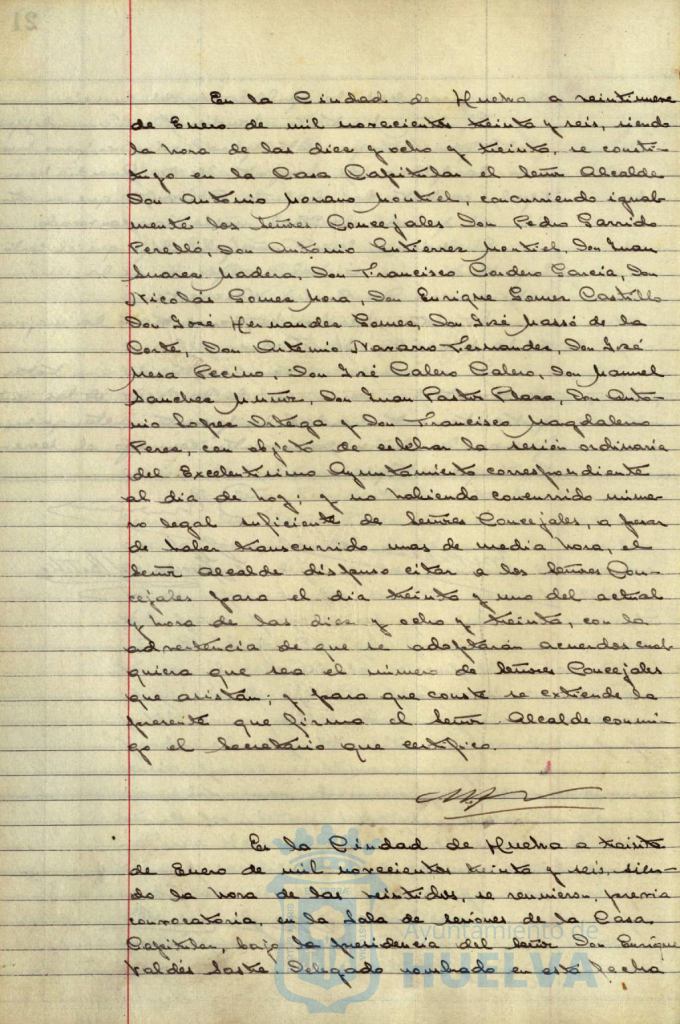 21
En la Ciudad de Huelva a veintinueve
de Enero de mil novecientos treinta y seis, siendo
la hora de las diez y ocho y treinta, se consti-
tuyó en la Casa Capitular el Señor Alcalde
Don Antonio Moreno Montiel, concurriendo igual-
mente los Señores Concejales Don Pedro Garrido
Perelló, Don Antonio Gutierrez Montiel, Don Juan
Suarez Madera, Don Francisco Cordero Garcia, Don
Nicolás Gomez Mora, Don Enrique Gomez Castillo
Don José Hernandez Gomez, Don José Massó de la
Corte, Don Antonio Navarro Fernandez, Don José
Mesa Pecino, Don José Calero Calero, Don Manuel
Sanchez Muñoz, Don Juan Pastor Plaza, Don Anto-
nio Lopez Ortega y Don Francisco Magdaleno
Perez, con objeto de celebrar la sesión ordinaria
del Excelentísimo Ayuntamiento correspondiente
al dia de hoy; y no habiendo concurrido núme-
ro legal suficiente de Señores Concejales, a pesar
de haber transcurrido mas de media hora, el
Señor Alcalde dispuso citar a los Señores Con-
cejales para el dia treinta y uno del actual
y hora de las diez y ocho y treinta, con la
advertencia de que se adoptarán acuerdos cual-
quiera que sea el número de Señores Concejales
que asistan; y para que conste se extiende la
presente que firma el Señor Alcalde conmi-
go el Secretario que certifico.
En la Ciudad de Huelva a treinta
de Enero de mil novecientos treinta y seis, sien-
do la hora de las veintidos, se reunieron, previa
convocatoria, en la Sala de sesiones de la Casa
Capitular, bajo la presidencia del Señor Don Enrique
Valdés Sastre Delegado nombrado en esta fecha
Ayuntamiento de
HUELVA